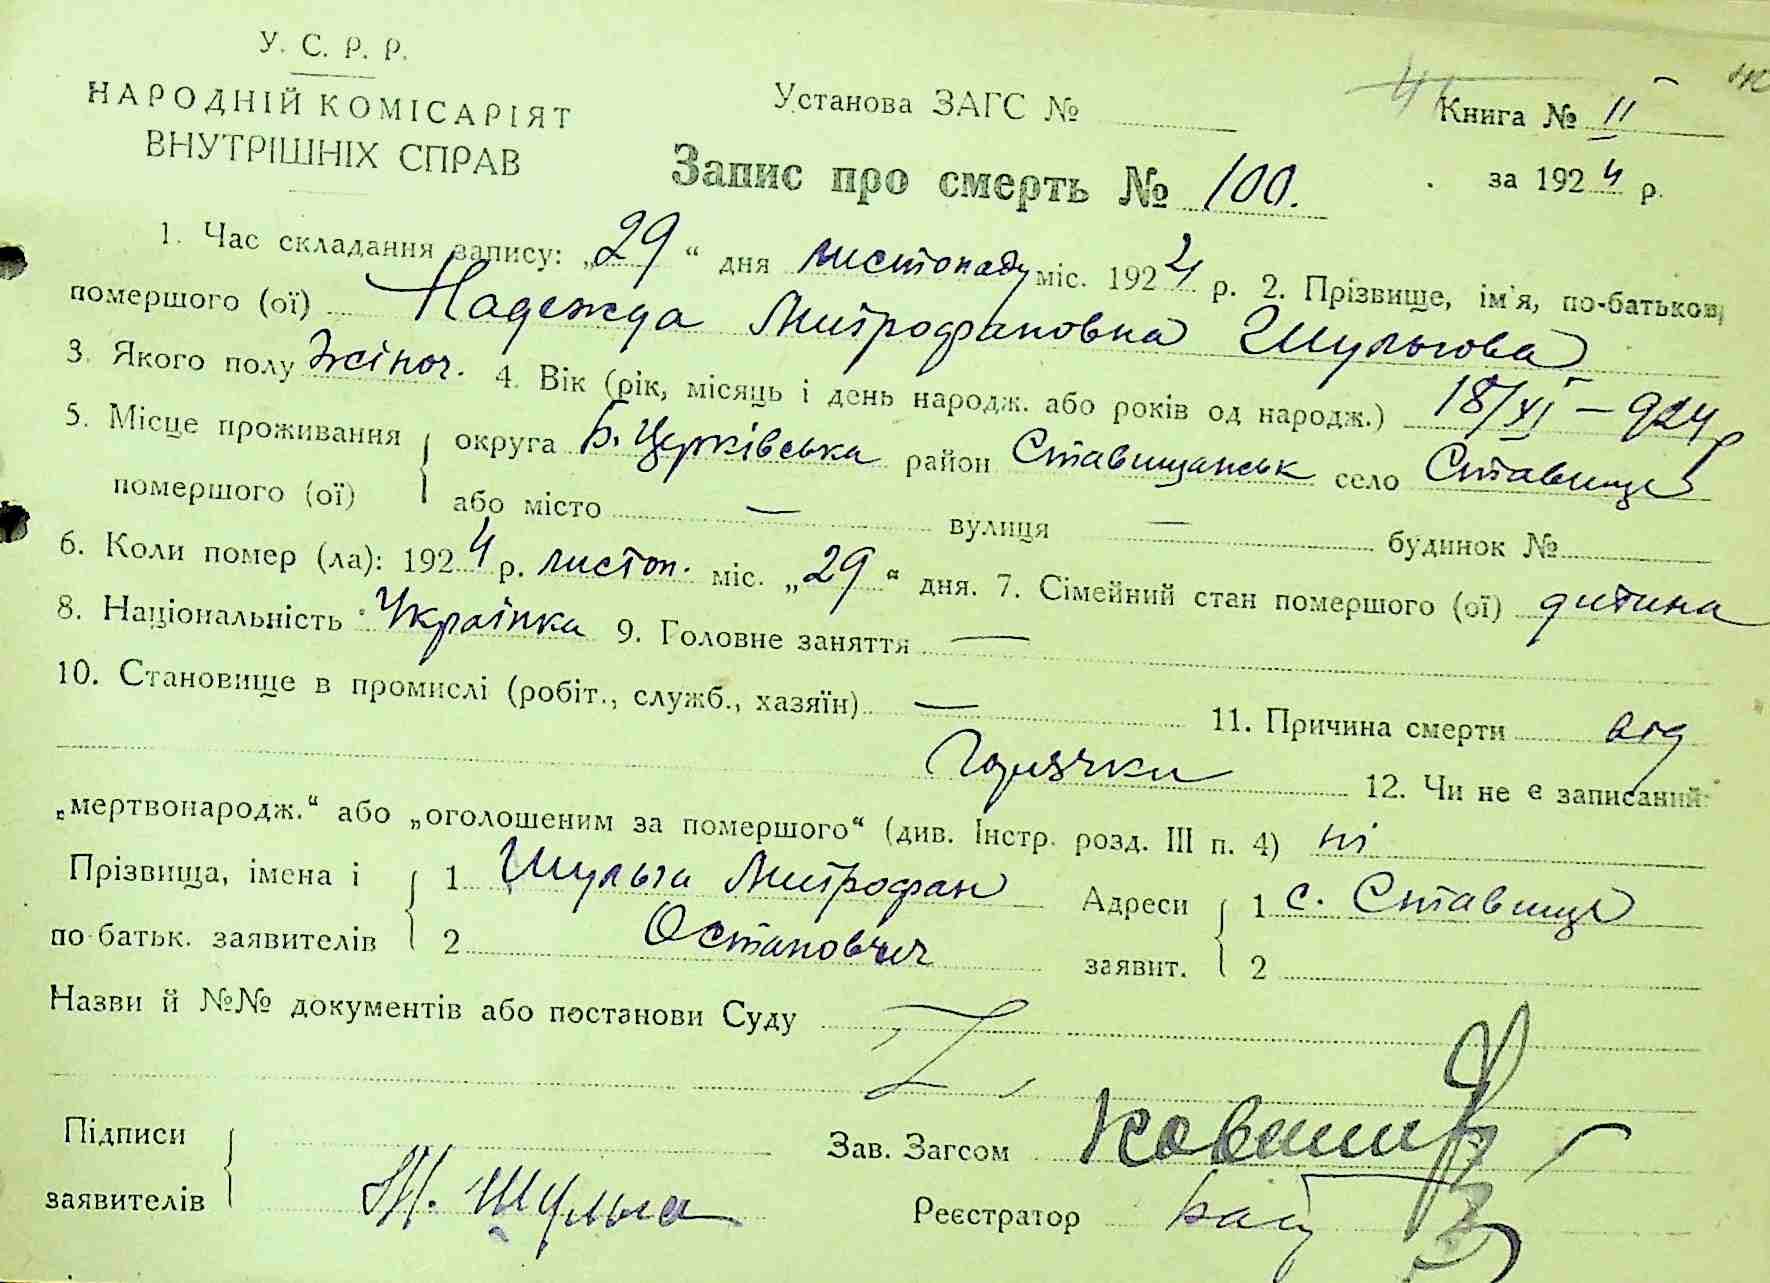 У. С. Р. Р.
НАРОДНІЙ КОМІСАРІЯТ
ВНУТРІШНІХ СПРАВ
Установа ЗАГС №
Книга № II
Запис про смерть № 100.
за 1924 р.
1. Час складання запису: „29“ дня листопаду міс. 1924 р. 2. Прізвище, ім'я, по-батькові
помершого (ої) Надежда Митрофановна Шульгова
3. Якого полу Жіноч. 4. Вік (рік, місяць і день народж. або років од народж.) 18/XI – 924 р
5. Місце проживання округа Б. Церківська район Ставищанськ село Ставище
помершого (ої) або місто — вулиця — будинок №
6. Коли помер (ла): 1924 р. листоп. міс. „29“ дня. 7. Сімейний стан помершого (ої) дитина
8. Національність Українка 9. Головне заняття —
10. Становище в промислі (робіт., служб., хазяїн) — 11. Причина смерти від
Горячки 12. Чи не є записаний
„мертвонародж.“ або „оголошеним за помершого“ (див. Інстр. розд. III п. 4) ні
Прізвища, імена і 1 Шульга Митрофан Адреси 1 с. Ставище
по батьк. заявителів 2 Остапович заявит. 2
Назви й №№ документів або постанови Суду
Підписи Зав. Загсом
заявителів М. Шульга Реєстратор